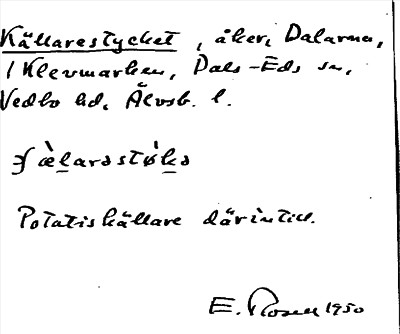 Källarestycket, åker, Dalarna,
/ Klevmarken, Dals-Eds sn,
Vedbo hd, Älvsb. l.
Potatiskällare därintill.
E. Rosell 1950